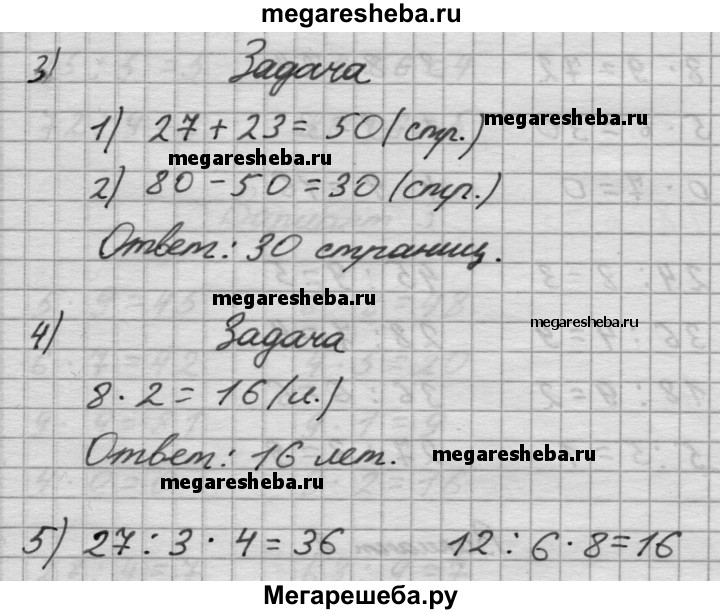 megaresheba.ru
3) Задача
1) 27 + 23 = 50 (стр.) megaresheba.ru
megaresheba.ru
2) 80 - 50 = 30 (стр.)
Ответ: 30 страниц.
megaresheba.ru
4) Задача megaresheba.ru
8 · 2 = 16 (л.)
Ответ: 16 лет. megaresheba.ru
megaresheba.ru
5) 27 : 3 · 4 = 36 12 : 6 · 8 = 16
Мегарешеба.ру